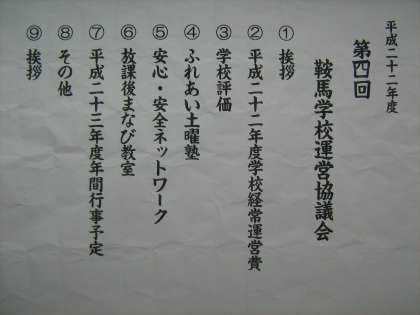 平成二十二年度
第四回
鞍馬学校運営協議会
①挨拶
②平成二十二年度学校経常運営費
③学校評価
④ふれあい土曜塾
⑤安心・安全ネットワーク
⑥放課後まなび教室
⑦平成二十三年度年間行事予定
⑧その他
⑨挨拶